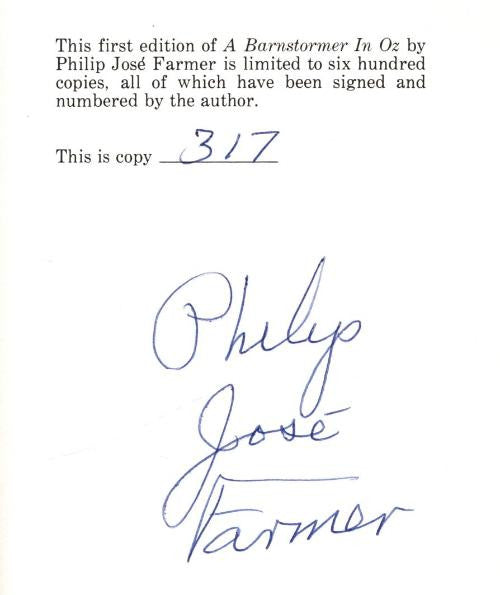 This first edition of A Barnstormer In Oz by
Philip José Farmer is limited to six hundred
copies, all of which have been signed and
numbered by the author.
This is copy 317
Philip
José
Farmer